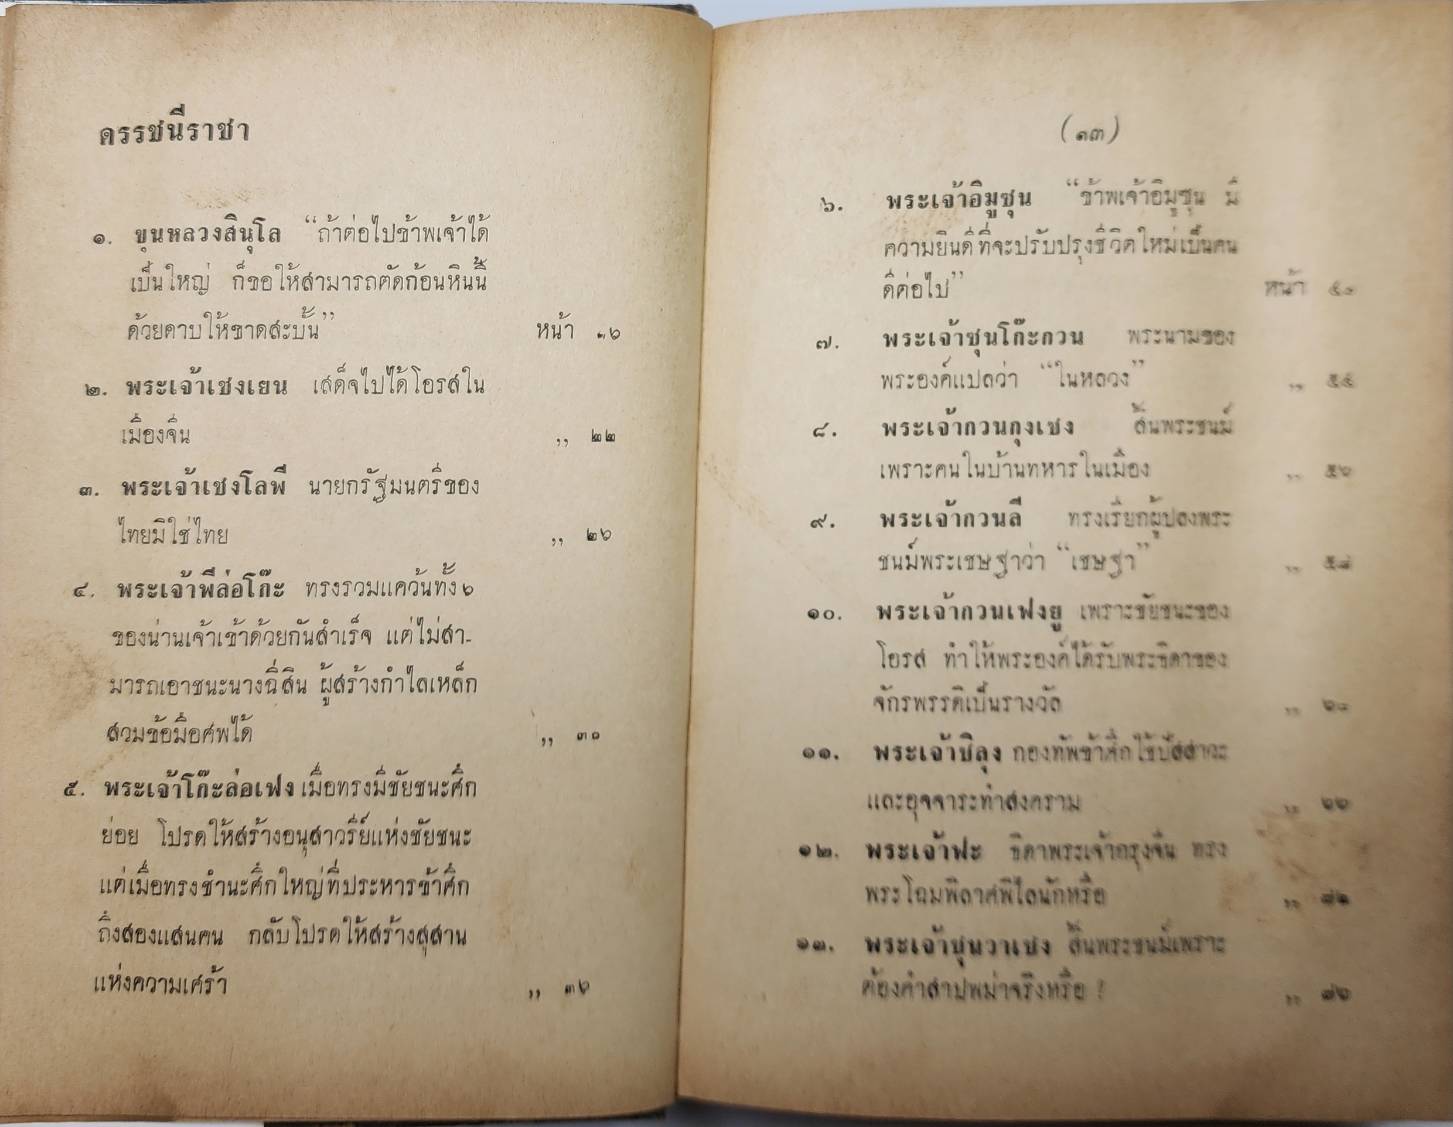 ครรชนีราชา
๑. ขุนหลวงสินุโล “ถ้าต่อไปข้าพเจ้าได้
เป็นใหญ่ ก็ขอให้สามารถตัดก้อนหินนี้
ด้วยดาบให้ขาดสะบั้น” หน้า ๑๖
๒. พระเจ้าเชงเยน เสด็จไปได้โอรสใน
เมืองจีน ,, ๒๒
๓. พระเจ้าเชงโลพี นายกรัฐมนตรีของ
ไทยมิใช่ไทย ,, ๒๖
๔. พระเจ้าพีล่อโก๊ะ ทรงรวมแคว้นทั้ง ๖
ของน่านเจ้าเข้าด้วยกันสำเร็จ แต่ไม่สา-
มารถเอาชนะนางฉี่สิน ผู้สร้างกำไลเหล็ก
สวมข้อมือศพได้ ,, ๓๑
๕. พระเจ้าโก๊ะล่อเฟง เมื่อทรงมีชัยชนะศึก
ย่อย โปรดให้สร้างอนุสาวรีย์แห่งชัยชนะ
แต่เมื่อทรงชำนะศึกใหญ่ที่ประหารข้าศึก
ถึงสองแสนคน กลับโปรดให้สร้างสุสาน
แห่งความเศร้า ,, ๓๖
(๑๓)
๖. พระเจ้าอิมูซุน “ข้าพเจ้าอิมูซุน มี
ความยินดีที่จะปรับปรุงชีวิตใหม่เป็นคน
ดีต่อไป” หน้า
๗. พระเจ้าซุนโก๊ะกวน พระนามของ
พระองค์แปลว่า “ในหลวง” ,,
๘. พระเจ้ากวนกุงเชง สิ้นพระชนม์
เพราะคนในบ้านทหารในเมือง ,, ๕๖
๙. พระเจ้ากวนลี ทรงเรียกผู้ปลงพระ
ชนม์พระเชษฐาว่า “เชษฐา” ,, ๕๘
๑๐. พระเจ้ากวนเฟงยู เพราะชัยชนะของ
โอรส ทำให้พระองค์ได้รับพระธิดาของ
จักรพรรดิเป็นรางวัล ,,
๑๑. พระเจ้าชิลุง กองทัพข้าศึกใช้ปัสสาวะ
และอุจจาระทำสงคราม ,, ๖๖
๑๒. พระเจ้าฟะ ธิดาพระเจ้ากรุงจีน ทรง
พระโฉมพิลาศพิไลนักหรือ ,,
๑๓. พระเจ้าซุนวาเชง สิ้นพระชนม์เพราะ
ต้องคำสาปพม่าจริงหรือ ? ,,